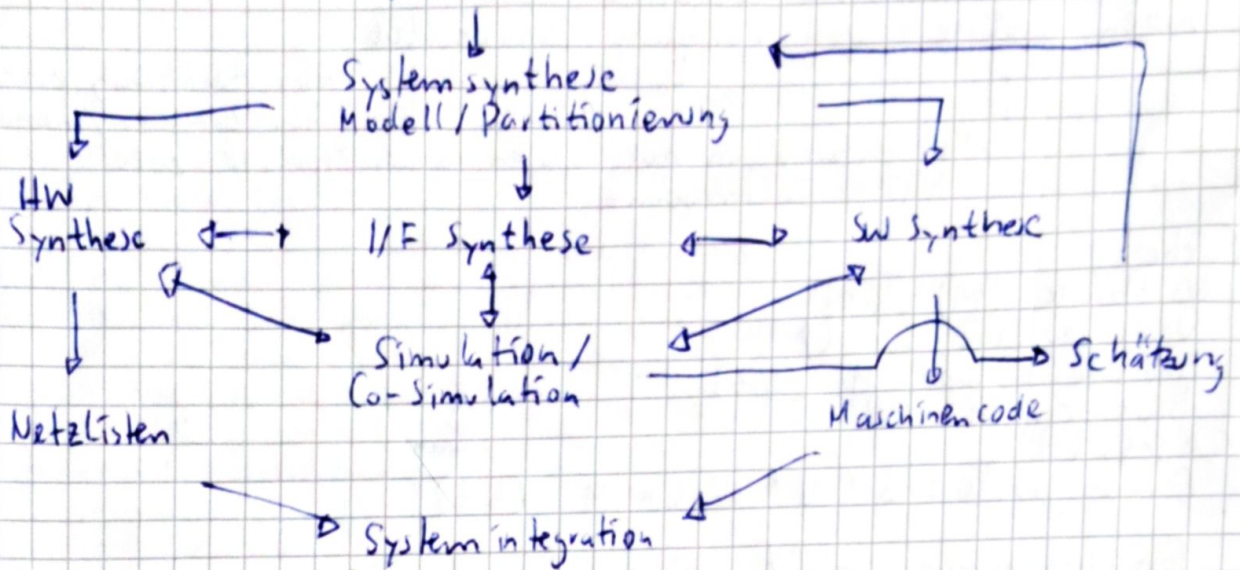 Systemsynthese
Modell / Partitionierung
HW
Synthese
I/F Synthese
SW Synthese
Simulation /
Co-Simulation
Schätzung
Netzlisten
Maschinencode
Systemintegration